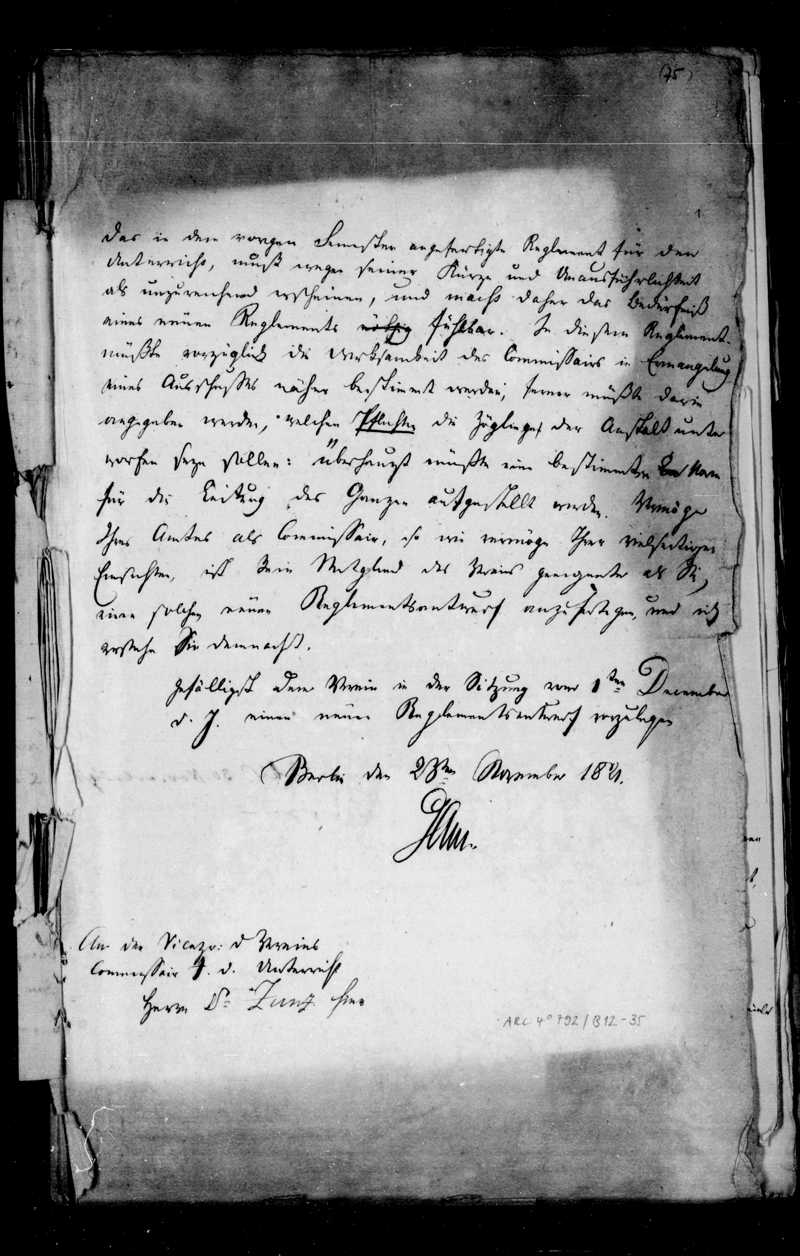 75)
1
Das in dem vorigen Semester angefertigte Reglement für den
Unterricht, muß wegen seiner Kürze und Unausführlichkeit
als unzureichend erscheinen, und macht daher das Bedürfniß
eines neuen Reglements nöthig fühlbar. In diesem Reglement
müßte vorzüglich die Wirksamkeit des Commissairs in Ermangelung
eines Ausschußes näher bestimmt werden, ferner müßte darin
angegeben werden, welchen Pflichten die Zöglinge der Anstalt unter
worfen seyn sollen: überhaupt müßte eine bestimmte Norm
für die Leitung des Ganzen aufgestellt werden. Vermöge
Ihres Amtes als Commissair, so wie vermöge Ihrer vielseitigen
Einsichten, ist kein Mitglied des Vereins geeigneter als Sie,
einen solchen neuen Reglementsentwurf anzufertigen, und ich
ersuche Sie demnach.
gefälligst dem Verein in der Sitzung vom 1ten December
d. J. einen neuen Reglementsentwurf vorzulegen
Berlin den 23ten November 1821.
An den Vicepr: d Vereins
Commissair f. d. Unterricht
Herrn Dr Zunz hier
ARC 4° 792/B12-35